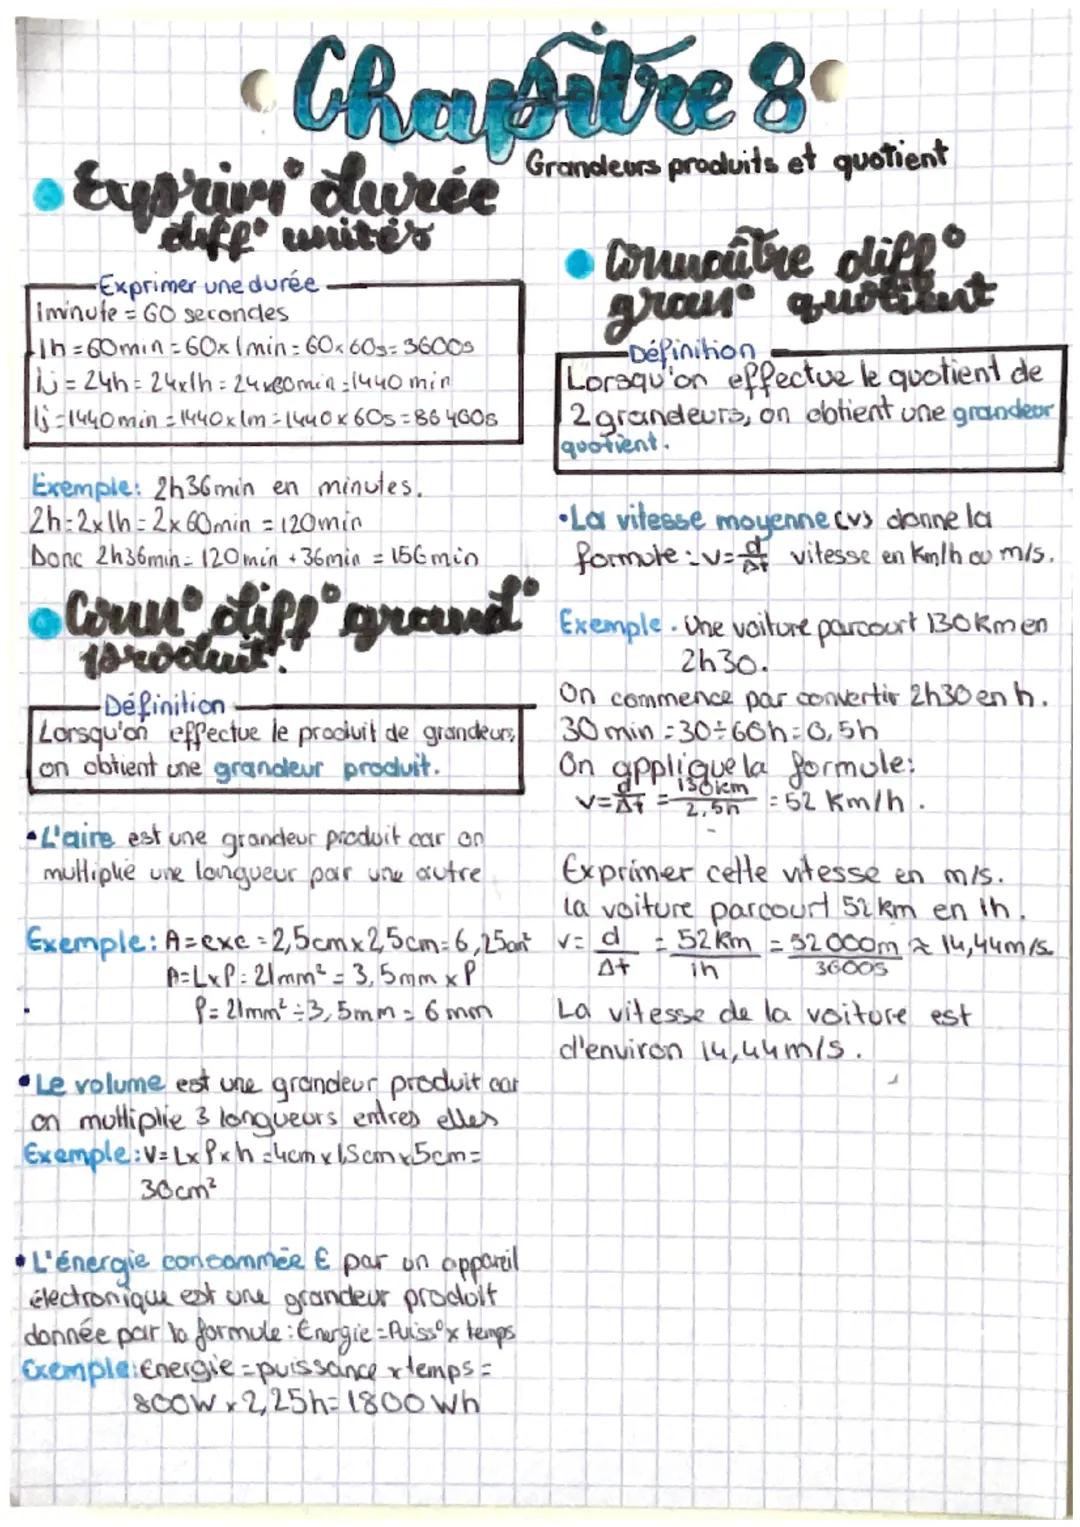 Chapitre 8
Grandeurs produits et quotient
Exprim° durée
diff° unités
Exprimer une durée
1minute = 60 secondes
1h = 60min = 60x1min = 60x60s = 3600s
1j = 24h = 24x1h = 24x60min = 1440 min
1j = 1440min = 1440x1m = 1440x60s = 86400s
Exemple: 2h36min en minutes.
2h = 2x1h = 2x60min = 120min
Donc 2h36min = 120min +36min = 156min
Conn° diff° grand°
produit.
Définition
Lorsqu'on effectue le produit de grandeurs,
on obtient une grandeur produit.
•L'aire est une grandeur produit car on
multiplie une longueur par une autre
Exemple: A=cxc = 2,5cm x 2,5cm = 6,25cm²
A=Lxl = 21mm² = 3,5mm x l
l = 21mm² ÷ 3,5mm = 6mm
•Le volume est une grandeur produit car
on multiplie 3 longueurs entres elles
Exemple: V= Lxlxh = 4cm x 1,5cm x 5cm =
30cm²
•L'énergie consommée E par un appareil
électronique est une grandeur produit
donnée par la formule: Energie = Puiss° x temps
Exemple: Energie = puissance x temps =
800W x 2,25h = 1800 Wh
Connaître diff°
gran° quotient
Définition
Lorsqu'on effectue le quotient de
2 grandeurs, on obtient une grandeur
quotient.
•La vitesse moyenne (v) donne la
formule : v= d/Δt vitesse en Km/h ou m/s.
Exemple. Une voiture parcourt 130 Km en
2h30.
On commence par convertir 2h30 en h.
30min = 30÷60h = 0,5h
On applique la formule:
v= d/Δt = 130km/2,5h = 52 Km/h.
Exprimer cette vitesse en m/s.
la voiture parcourt 52 km en 1h.
v= d/Δt = 52Km/1h = 52000m/3600s ≈ 14,44m/s
La vitesse de la voiture est
d'environ 14,44m/s.